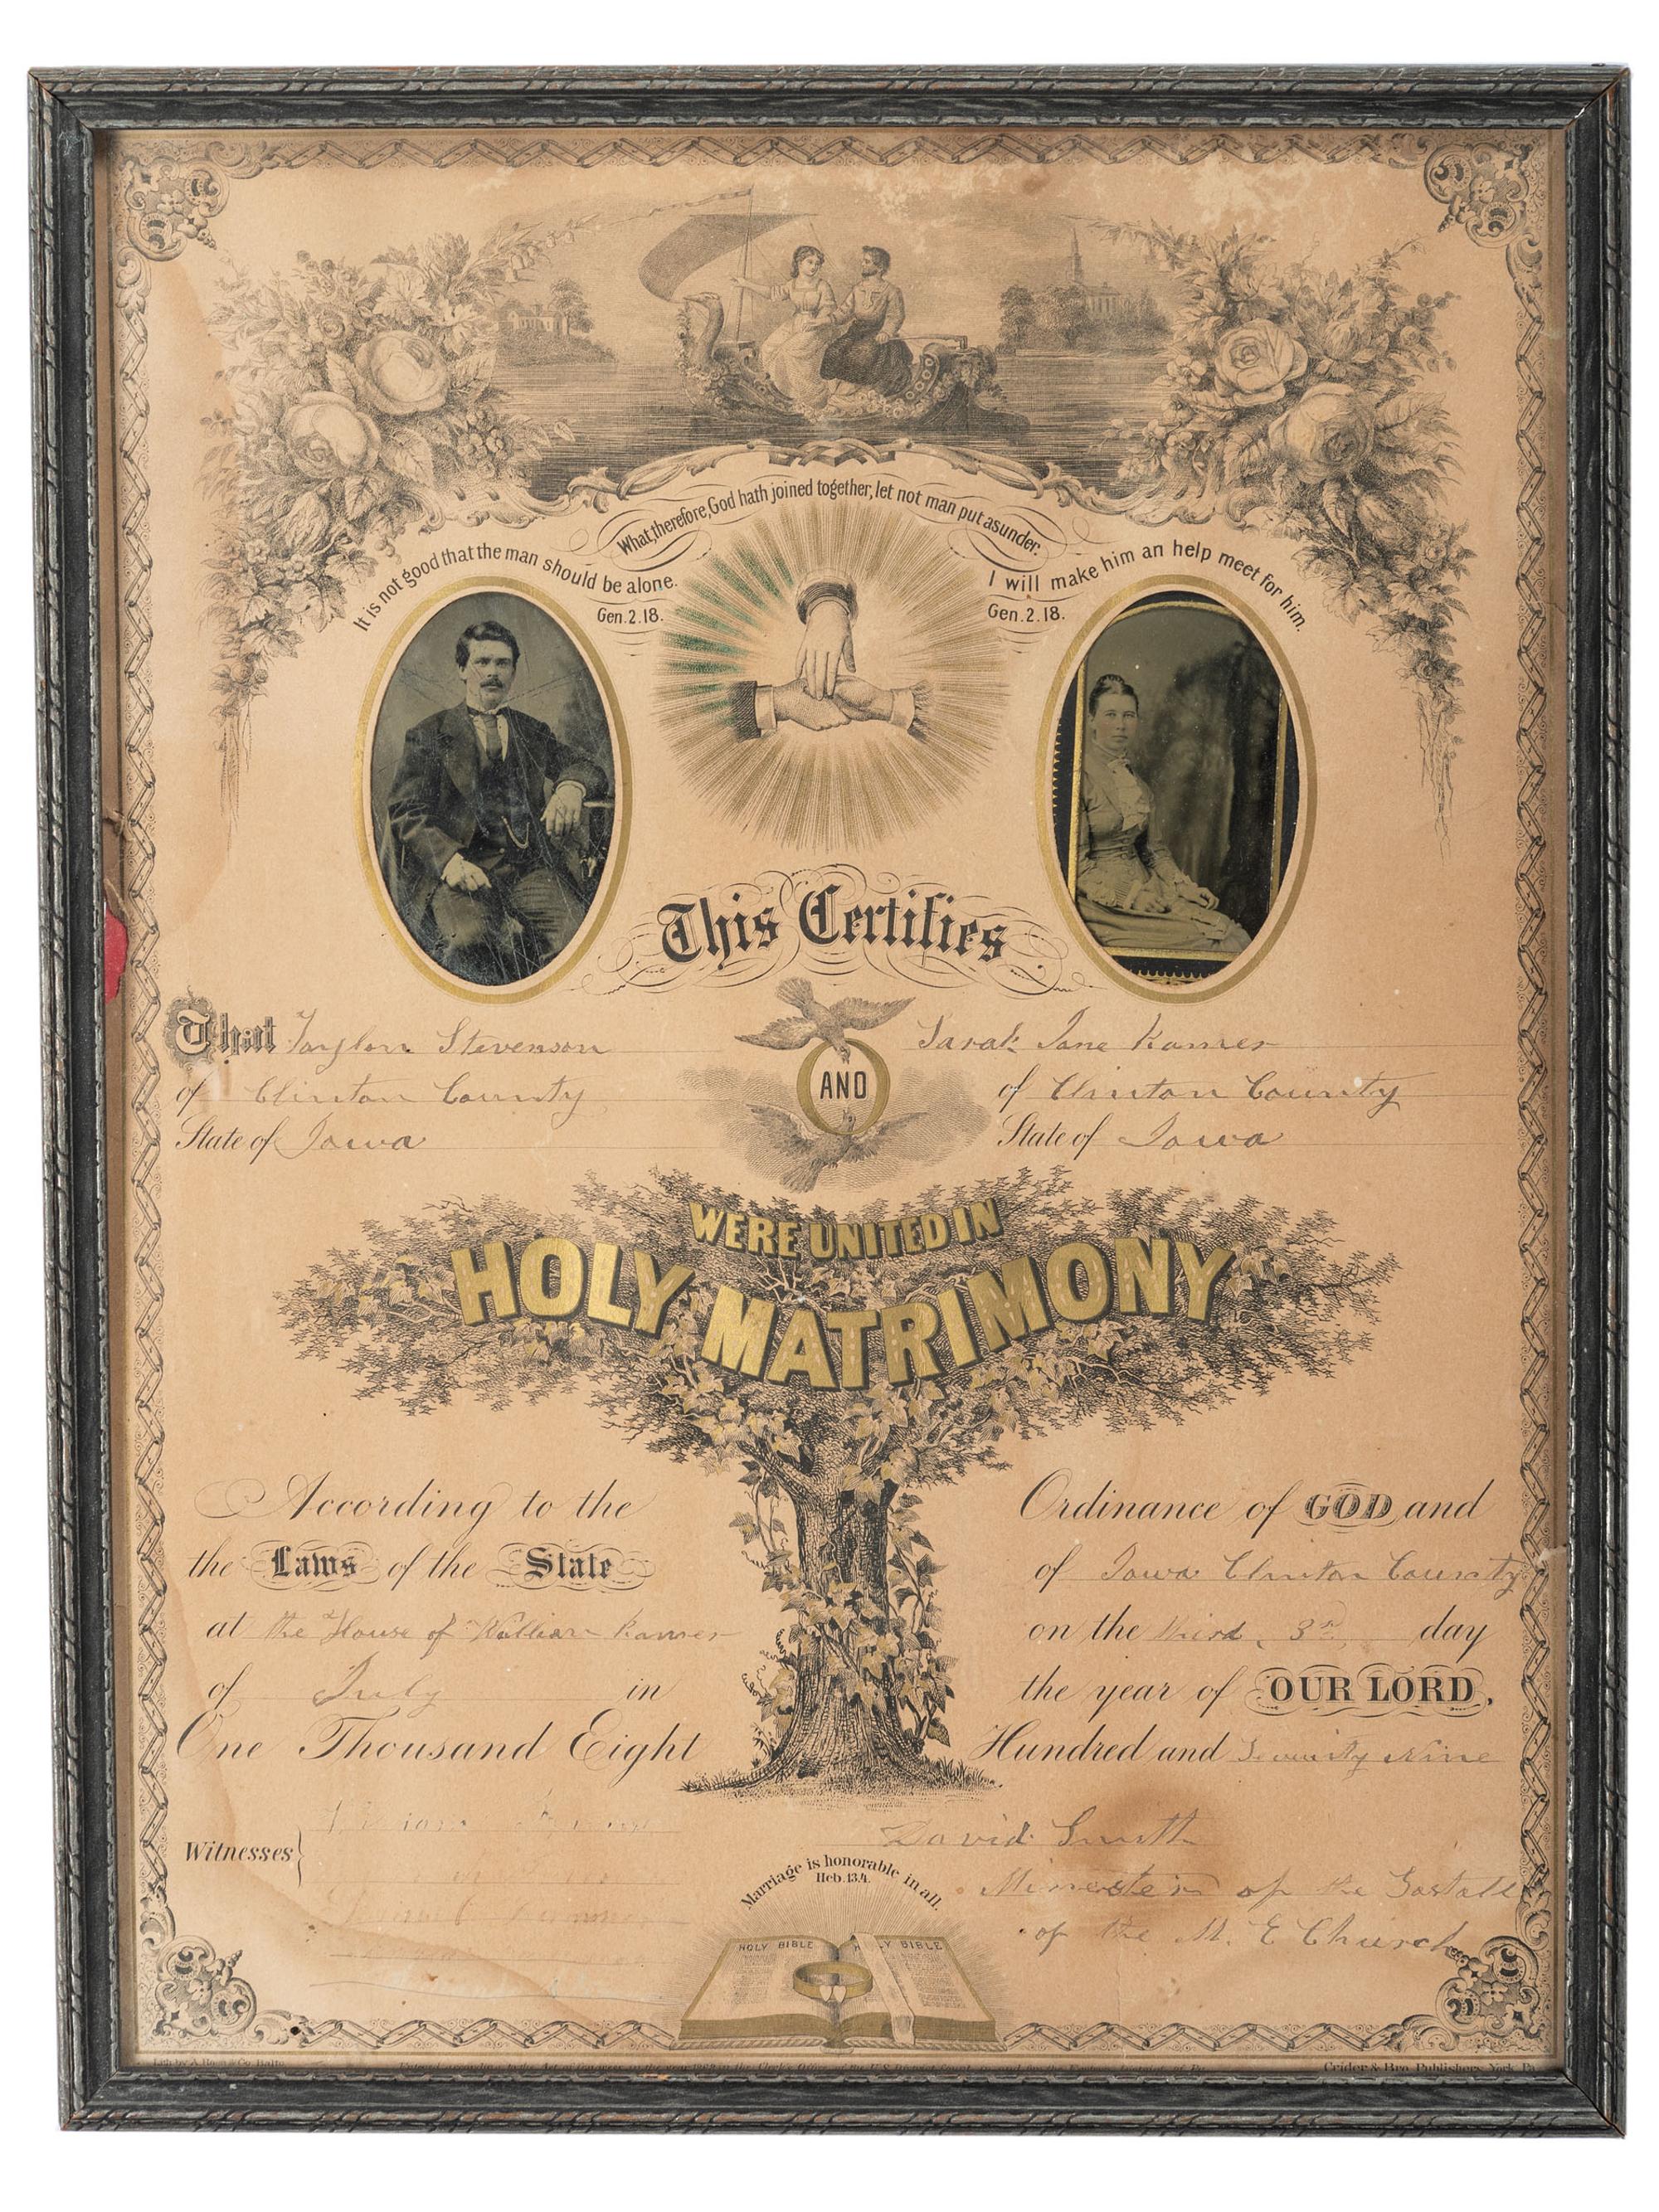 What, therefore, God hath joined together, let not man put asunder.
It is not good that the man should be alone.
Gen. 2. 18.
I will make him an help meet for him.
Gen. 2. 18.
This Certifies
That Taylor Stevenson
of Clinton County
State of Iowa
AND
Sarah Jane
of Clinton County
State of Iowa
WERE UNITED IN
HOLY MATRIMONY
According to the Ordinance of GOD and
the Laws of the State of Iowa Clinton County
at the House of William on the third 3rd day
of July in the year of OUR LORD,
One Thousand Eight Hundred and Seventy Nine
Witnesses
David Smith
of the
of the M. E Church
Marriage is honorable in all.
Heb. 13.4.
HOLY BIBLE HOLY BIBLE
Lith. by A. Hoen & Co. Balto.
Crider & Bro. Publishers, York, Pa.